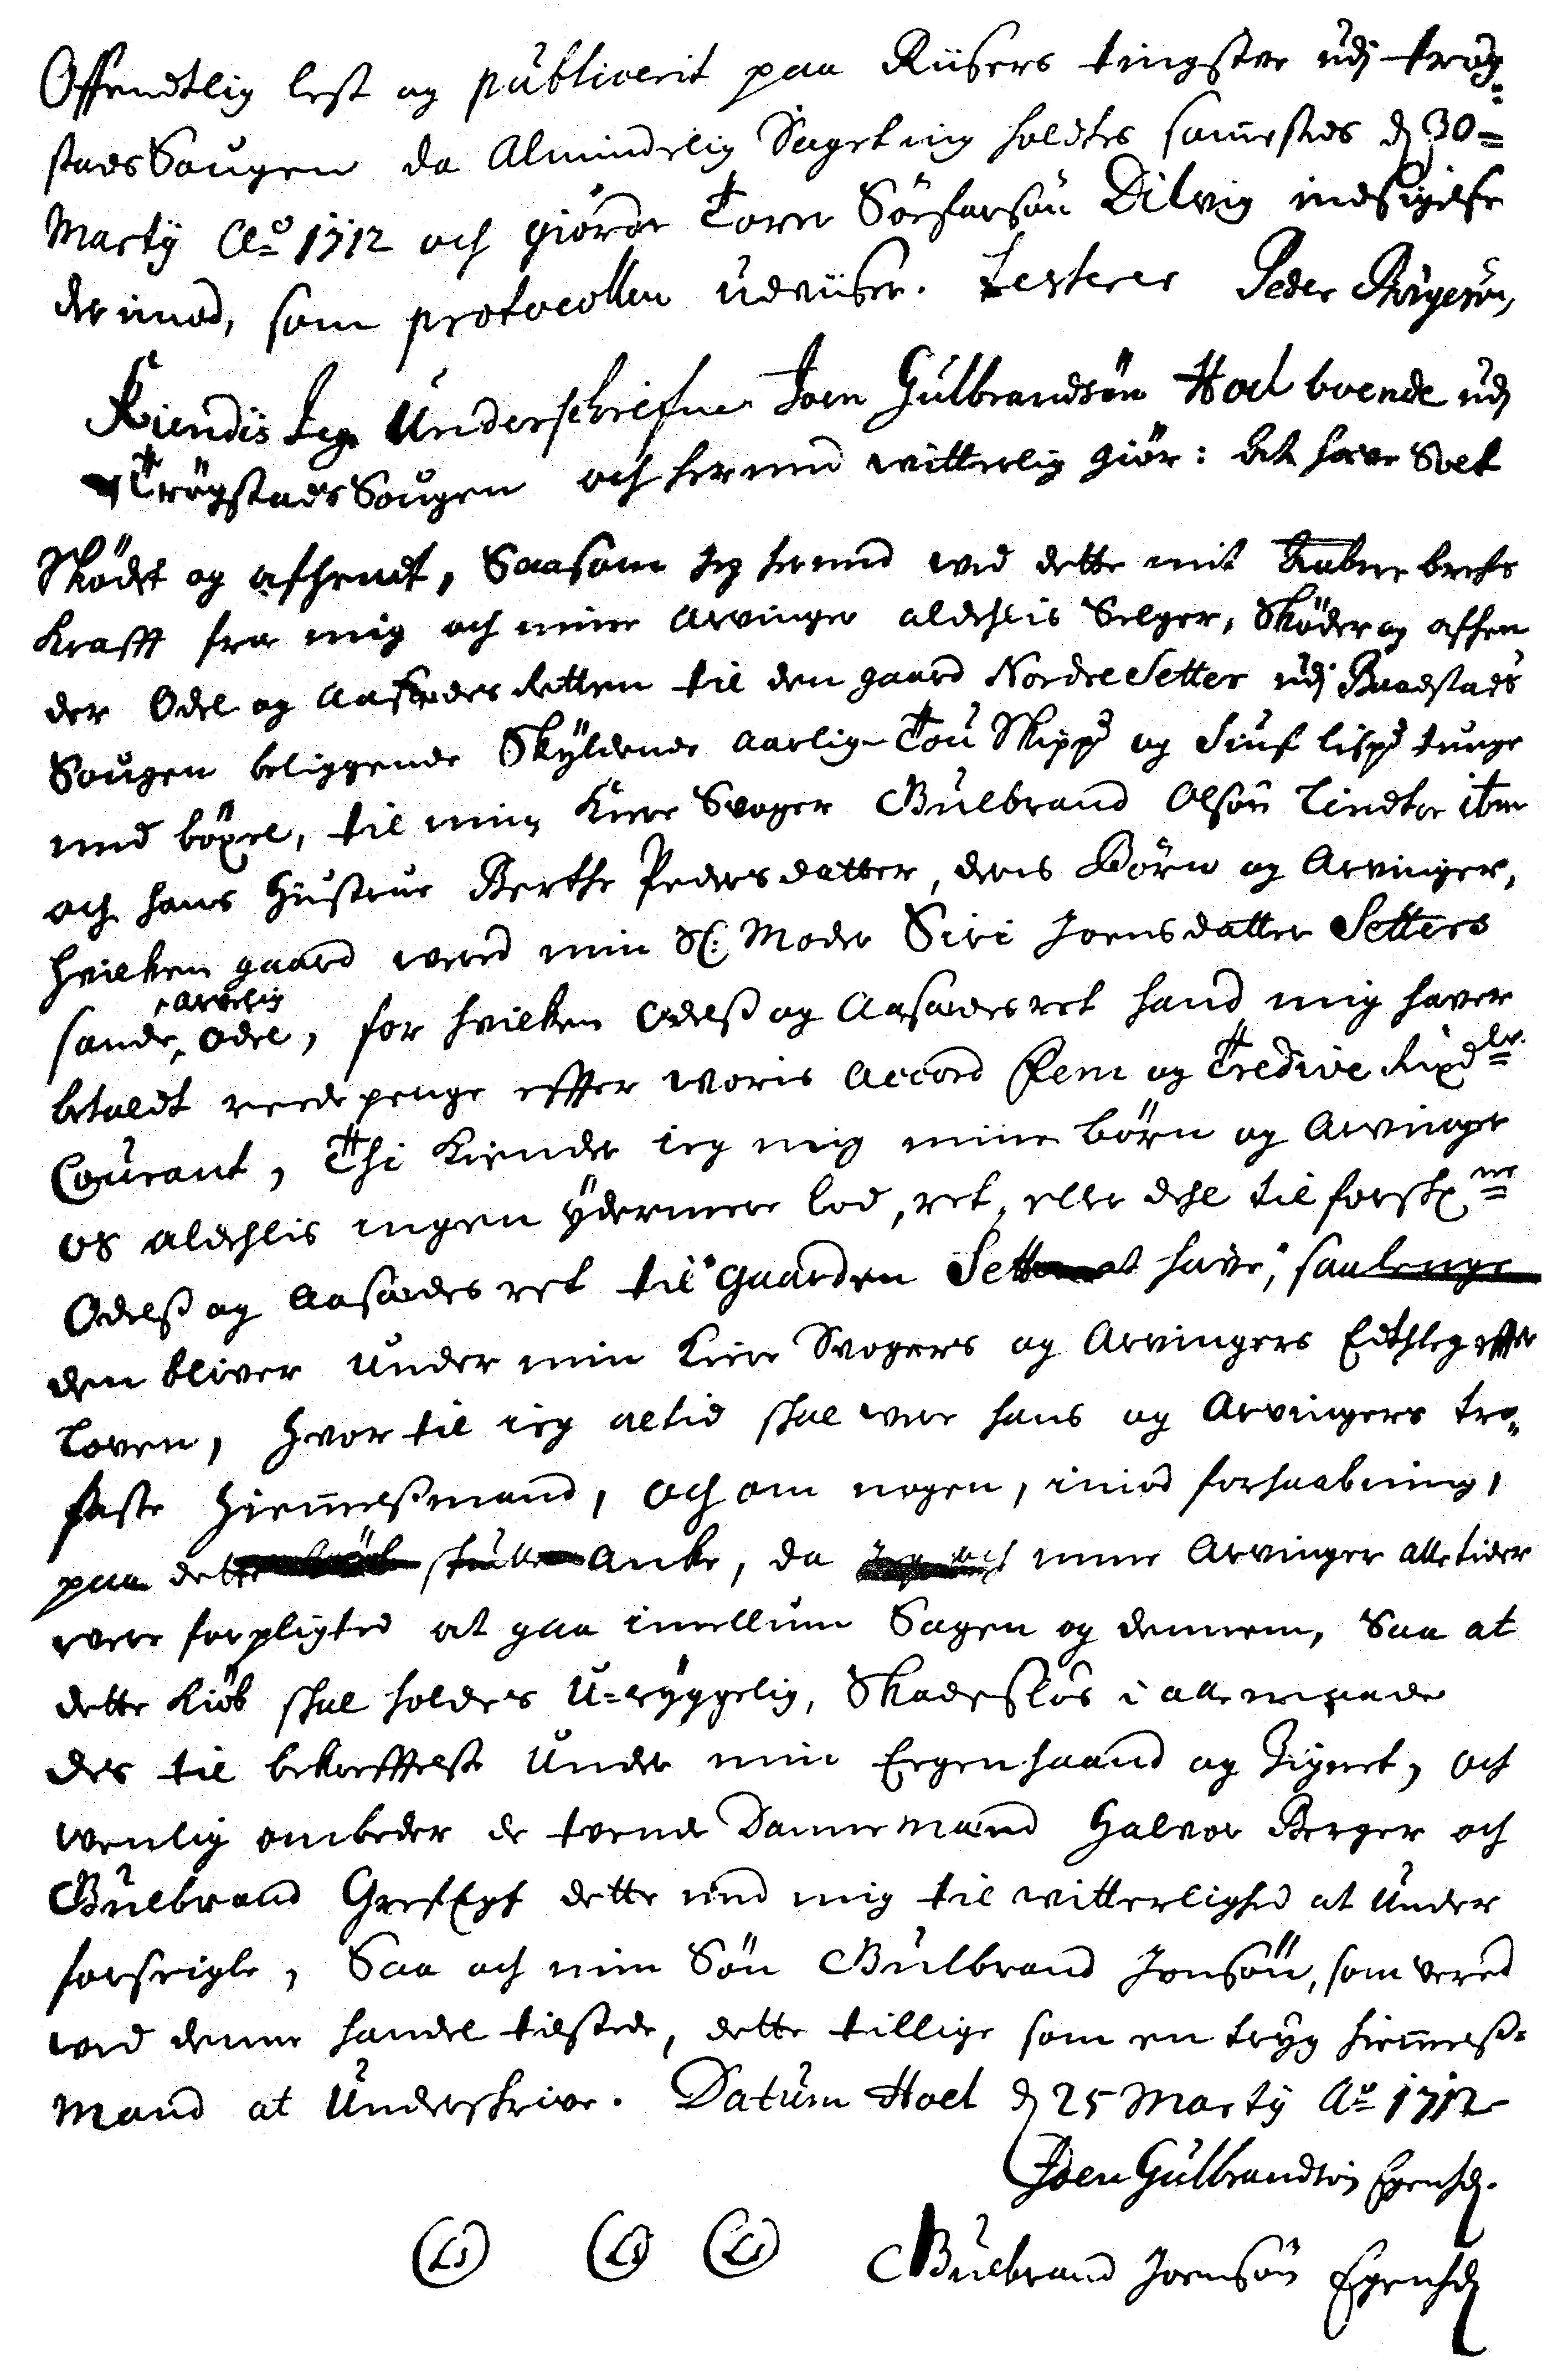 Offendtlig lest og publicerit paa Riisers tingstve udj trög-
stads Sougen da Almindelig Sageting holdtes sam̄esteds dȷ 30=
Martÿ Aͦ 1712 och giörde Tover Dilvig indsigelse
derimod, som protocollen udviiser. Testerer Peder Börgesön,
Kiendis Jeg Underschrefne Joen Gulbrandsön Hoel boende udj
TrögstadsSougen och hermed witterlig giör: det have Solt
Sködet og afhendt, Saasom Jeg hermed wed dette mit Aabne brefs
Krafft fra mig och mine Arvinger aldehlis Selger, Sköder og afhen
der Odel og Aasædes Retten til den gaard Nordre Setter udj Baadstads
Sougen beliggende Skÿldende Aarlig Tou Skippd og Siuf lispd tunge
med böxel, til min Kiere Svoger Gulbrand Olsön Lindtoe ibm
och hans Hustrue Berthe Pedersdatter, deris Börn og Arvinger,
hvilken gaard wered min Sl: Moder Siri Joensdatter Setters
sande arvelig Odel, for hvilken Odelß og Aasædes ret hand mig haver
betaldt reede penge effter woris Accord Fem og Tredive Rixdlr.
Courant, Thi Kiender ieg mig mine börn og Arvinger
os aldehlis ingen ÿdermere lod, ret, eller dehl til forskne
Odelß og Aasædes ret til Gaarden Setter at have, saalenge
den bliver under min Kiere Svogers og Arvingers Edthleg effter
Loven, hvor til ieg altid skal were hans og Arvingers tro-
faste Hiem̄elßmand, och om nogen, imod forhaabning,
paa dette kiöb skulle Anke, da ieg och mine Arvinger alle tider
were forpligted at gaa imellum Sagen og dennem, Saa at
dette Kiöb skal holdes U-rÿggelig, Skadeslös i alle maade
des til bekreffttelse Under min Eegen haand og Zignet, och
wenlig ombeder de tvende Dannemænd Halvor Berger och
Gulbrand Grefslj dette med mig til witterlighed at Under
forseigle, Saa och min Sön Gulbrand Jonsön, som vered
wed denne handel tilstede, dette tillige som en trÿg hiem̄elß=
Mand at Underskrive. Datum Hoel dȷ 25 Martÿ Aͦ 1712
Joen Gulbrandsön Egenhd.
(LS) (LS) (LS) Gulbrand Joensön Egenhd